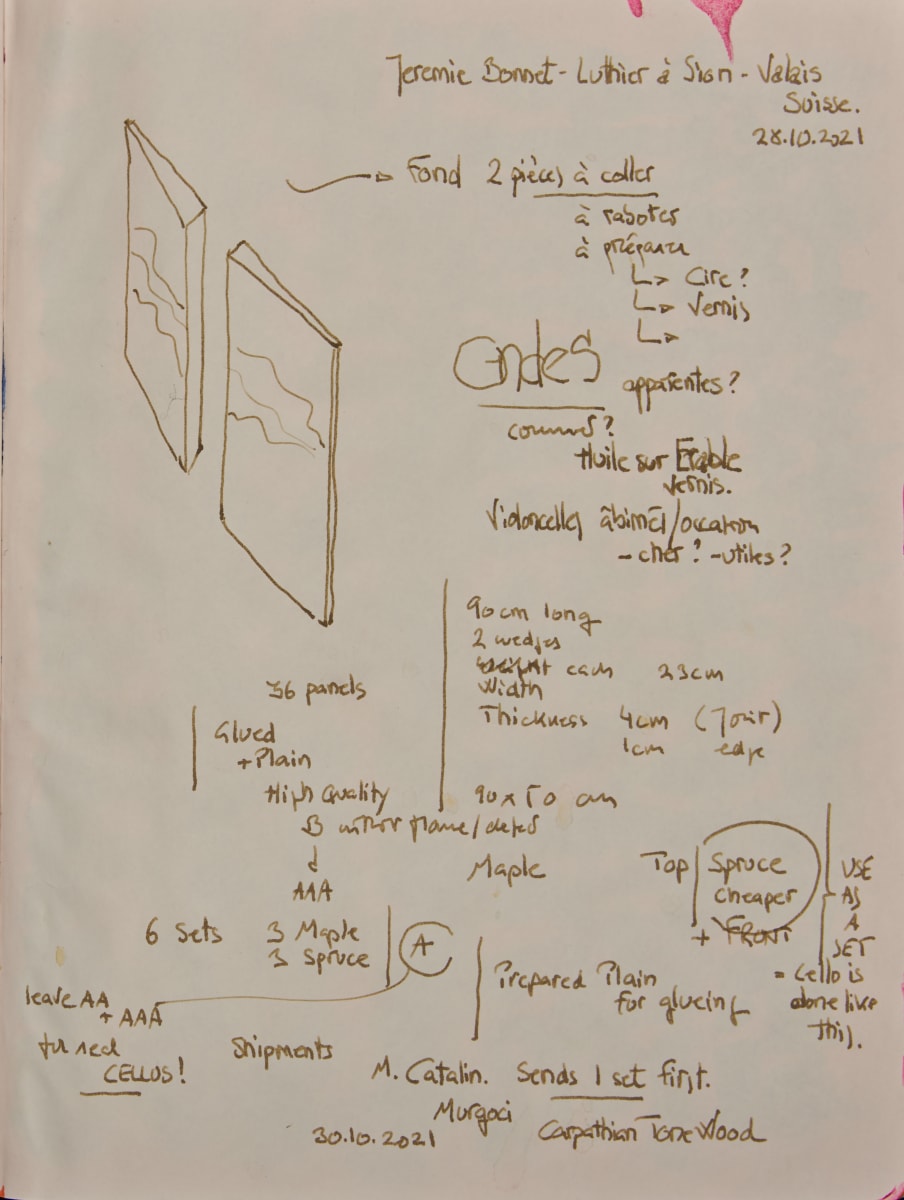 Jeremie Bonnet - Luthier à Sion - Valais
Suisse.
28.10.2021
Fond 2 pièces à coller
à raboter
à préparer
Cire ?
Vernis
Ondes apparentes ?
comment ?
Huile sur Erable
vernis.
Violoncelles âbimé/occasion
- cher ? - utiles ?
90 cm long
2 wedges
each 23cm
Width
Thickness 4cm (Joint)
1cm edge
90 x 50 cm
Maple
36 panels
Glued
+ Plain
High Quality
B with flame/
AAA
6 Sets 3 Maple
3 Spruce
A
leave AA
+ AAA
for real
CELLOS !
Top Spruce
cheaper
+ FRONT
USE
AS
A
SET
= Cello is
done like
this.
Prepared Plain
for glueing
Shipments
M. Catalin. Sends 1 set first.
Murgoci
30.10.2021 Carpathian Tone Wood